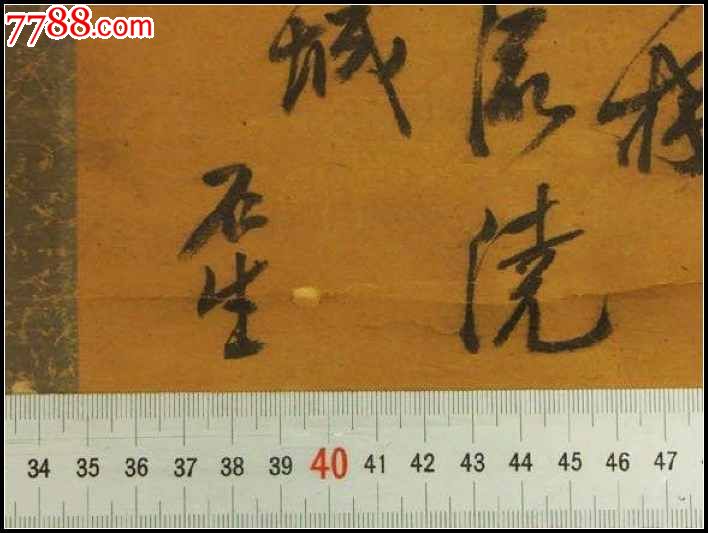 7788.com
城
石生
澆
34 35 36 37 38 39 40 41 42 43 44 45 46 47